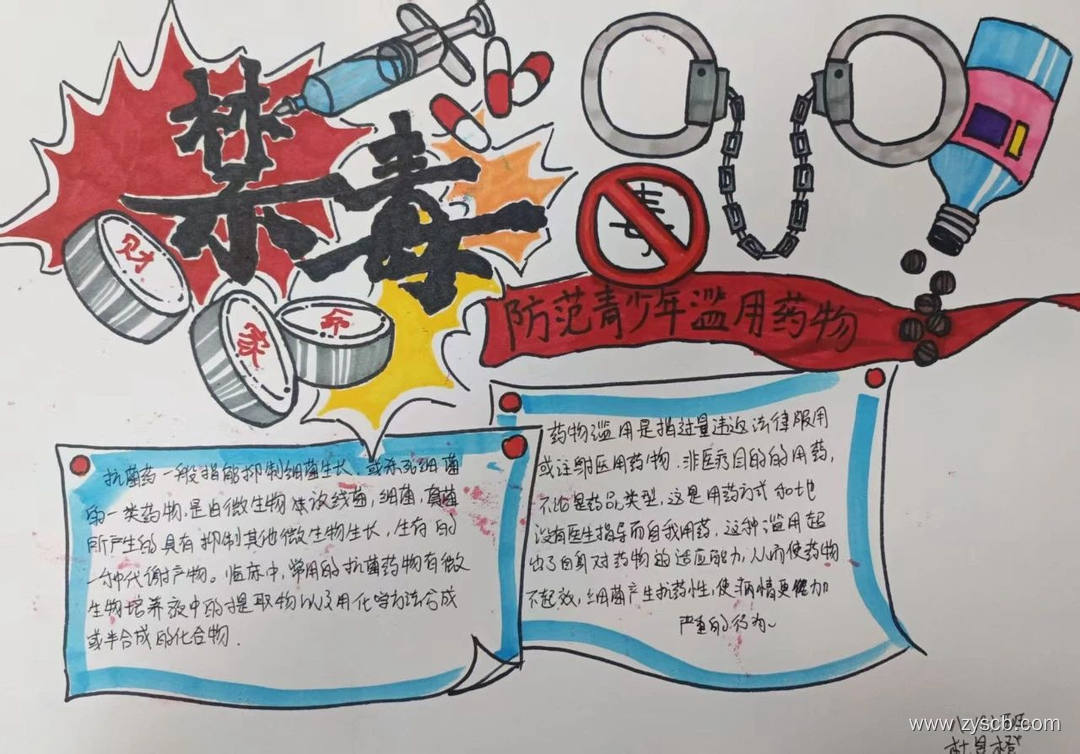 禁毒
财
钱
命
毒
防范青少年滥用药物
抗菌药一般指能抑制细菌生长、或杀死细菌
的一类药物，是由微生物体放线菌，细菌，真菌
所产生的具有抑制其他微生物生长，生存的
一种代谢产物。临床中，常用的抗菌药物有微
生物培养液中的提取物以及用化学方法合成
或半合成的化合物.
药物滥用是指过量违返法律服用
或注射医用药物.非医疗目的的用药，
不论是药品类型，这是用药方式和地
没有医生指导而自我用药，这种滥用起
出了自身对药物的适应能力，从而使药物
不起效，细菌产生抗药性，使病情更加
严重的行为~
www.zyscb.com